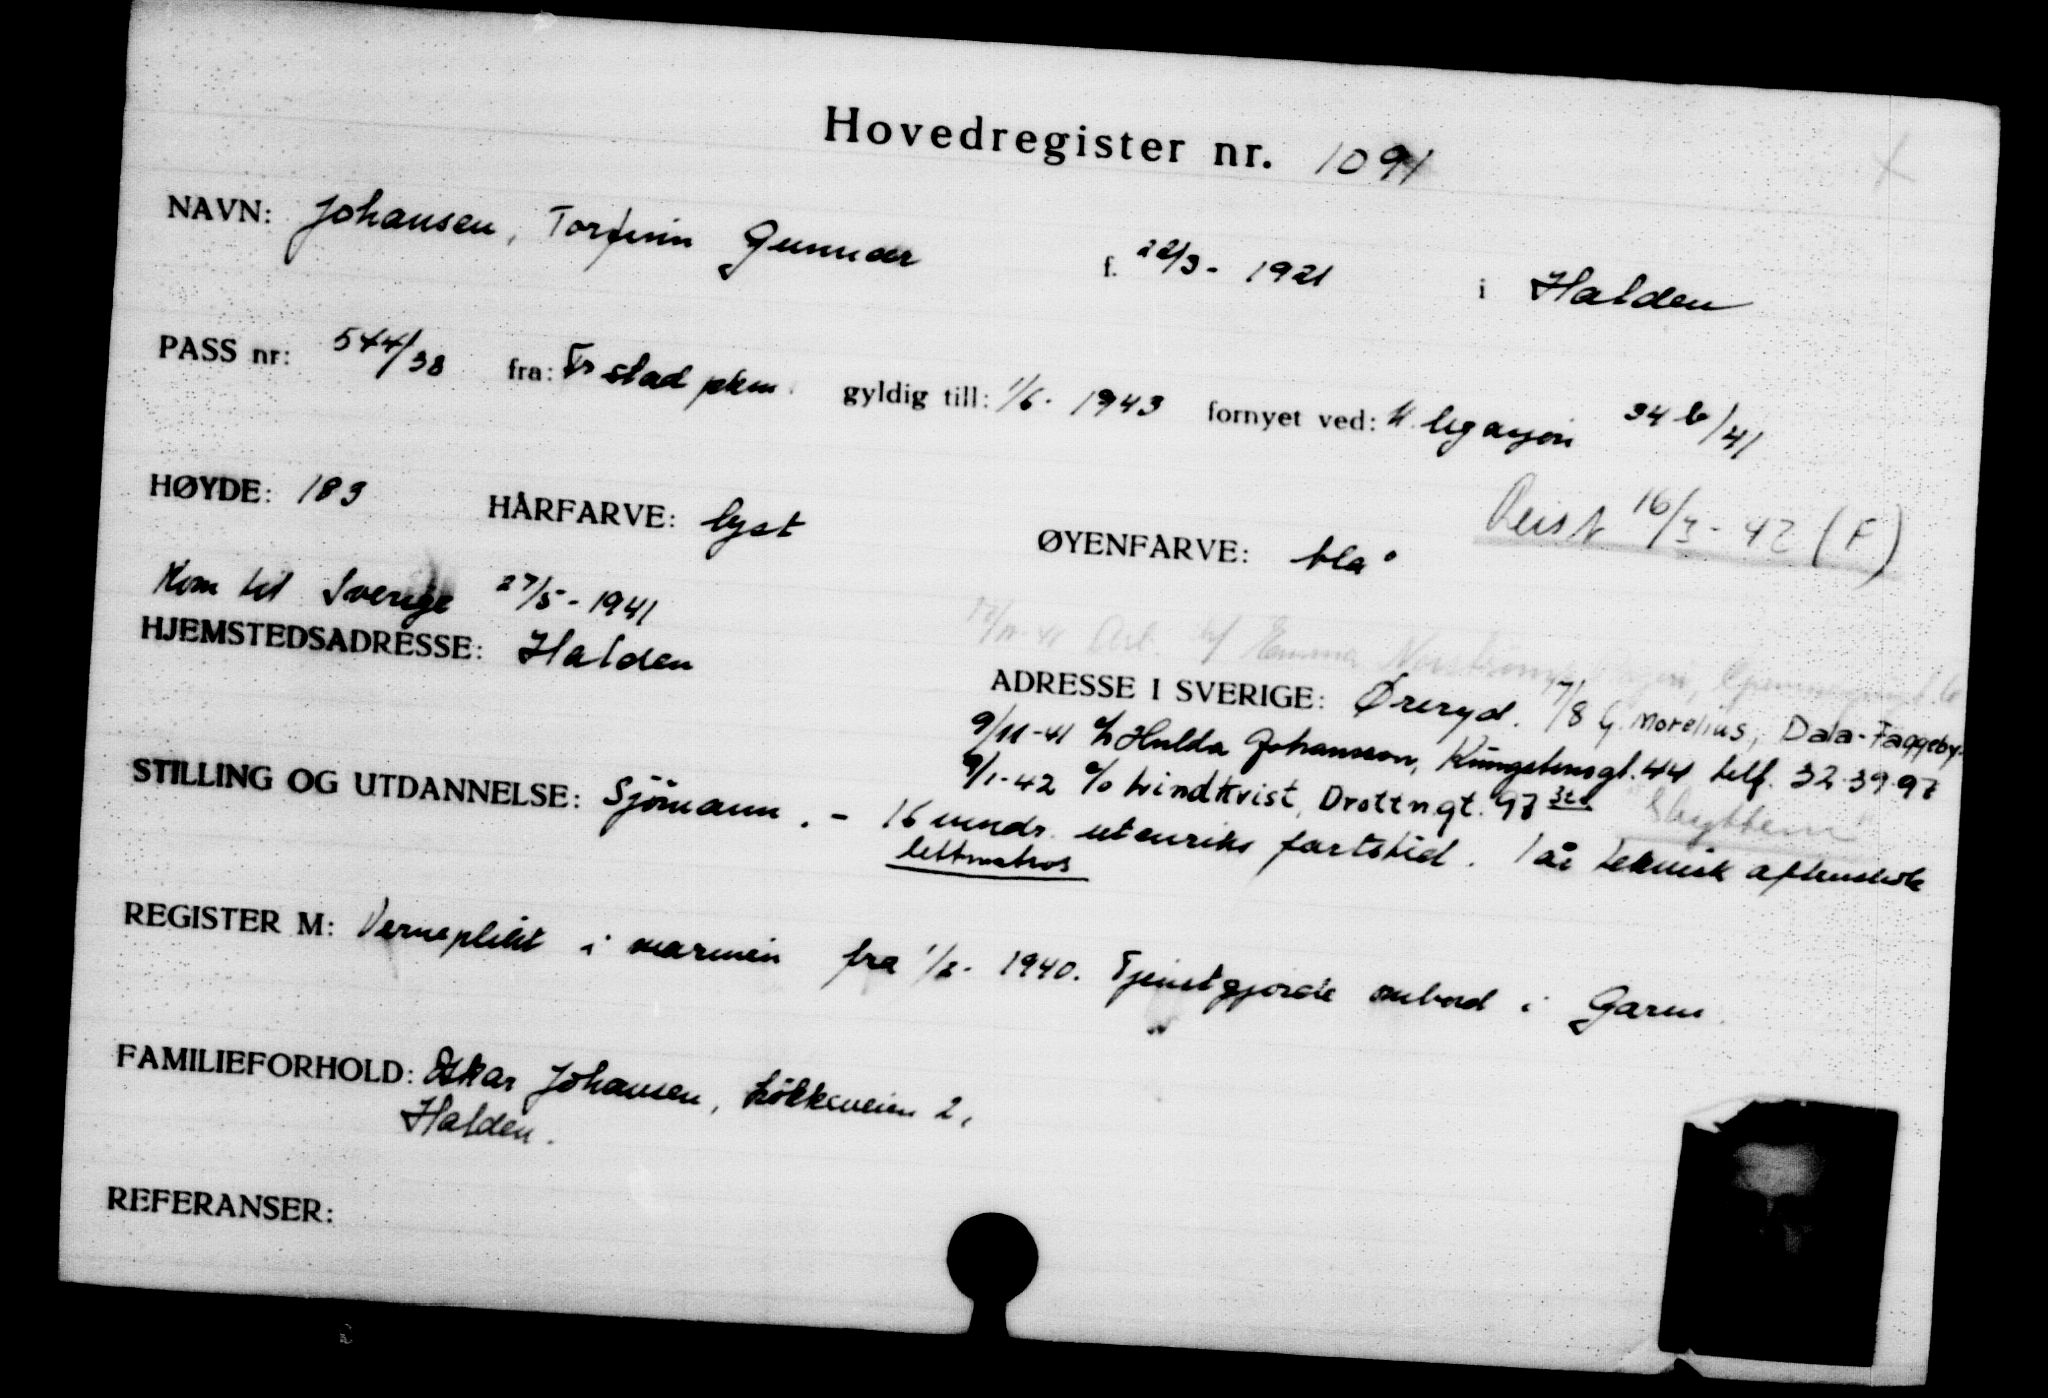 Hovedregister nr. 1091
NAVN: Johansen, Torfinn Gunnar f. 22/3- 1921 i Halden
PASS nr: 544/38 fra: Fr stad pkm. gyldig till: 1/6- 1943 fornyet ved: legasjon 34 b/41
HØYDE: 183 HÅRFARVE: lyst ØYENFARVE: blå Reist 16/3-42 (F)
Kom til Sverige 27/5-1941
HJEMSTEDSADRESSE: Halden
Arb. Emma
ADRESSE I SVERIGE: Øreryd. 17/8 G. Morelius, Dala-Faggeby.
9/11-41 c/o Hulda Johansson, Kungstensgt. 44 telf. 32.39.97
9/1-42 c/o Lindkvist, Drottn.gt. 97
STILLING OG UTDANNELSE: Sjömann. - 16 mndr. utenriks fartstid. 1 år teknisk aftenskole
lettmatros
REGISTER M: Verneplikt i marinen fra 1/2- 1940. Tjenstgjorde ombord i Garm.
FAMILIEFORHOLD: Oskar Johansen, Lökkeveien 2,
Halden.
REFERANSER: